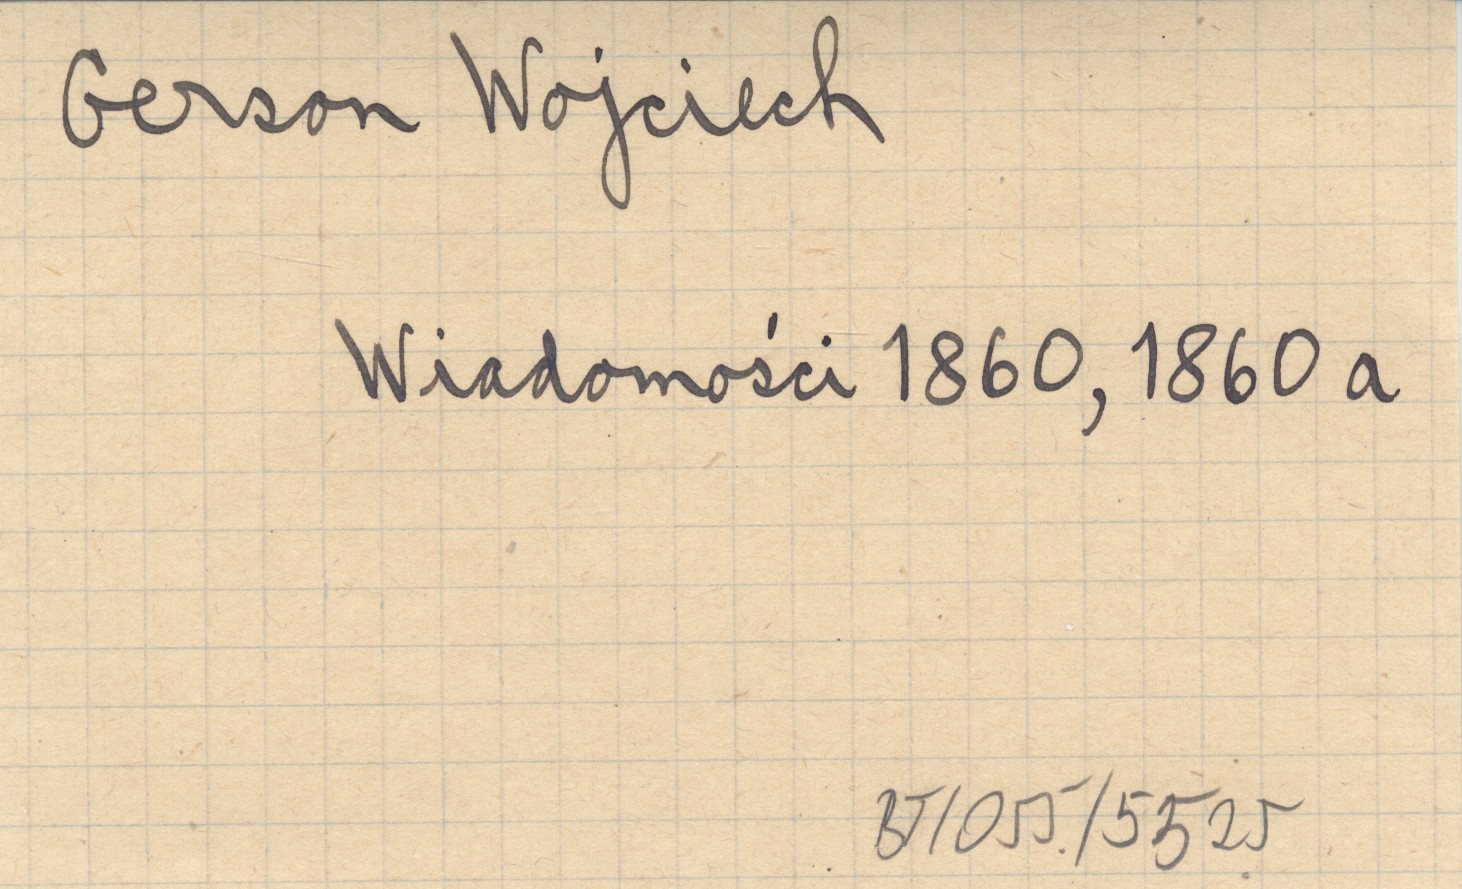 Gerson Wojciech
Wiadomości 1860, 1860 a
BJ/055./5525